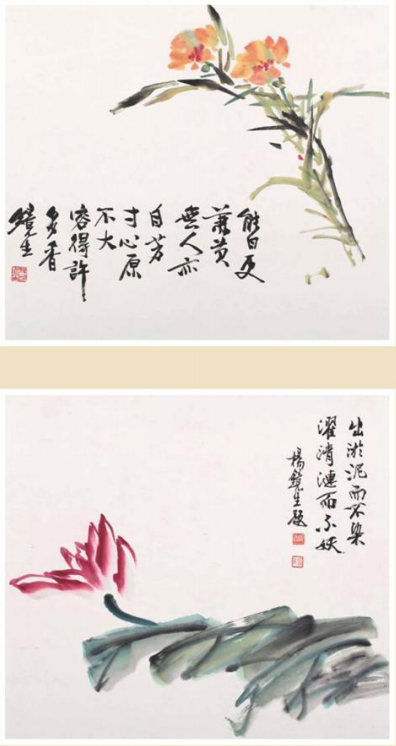 能白更
兼黄
無人亦
自芳
寸心原
不大
容得許
多香
鏡生
出淤泥而不染
濯清漣而不妖
楊鏡生題